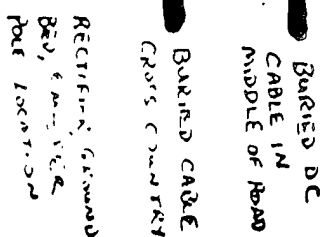 BURIED DC
CABLE IN
MIDDLE OF ROAD
BURIED CABLE
CROSS COUNTRY
RECTIFIER, GROUND
BED,
POLE LOCATION